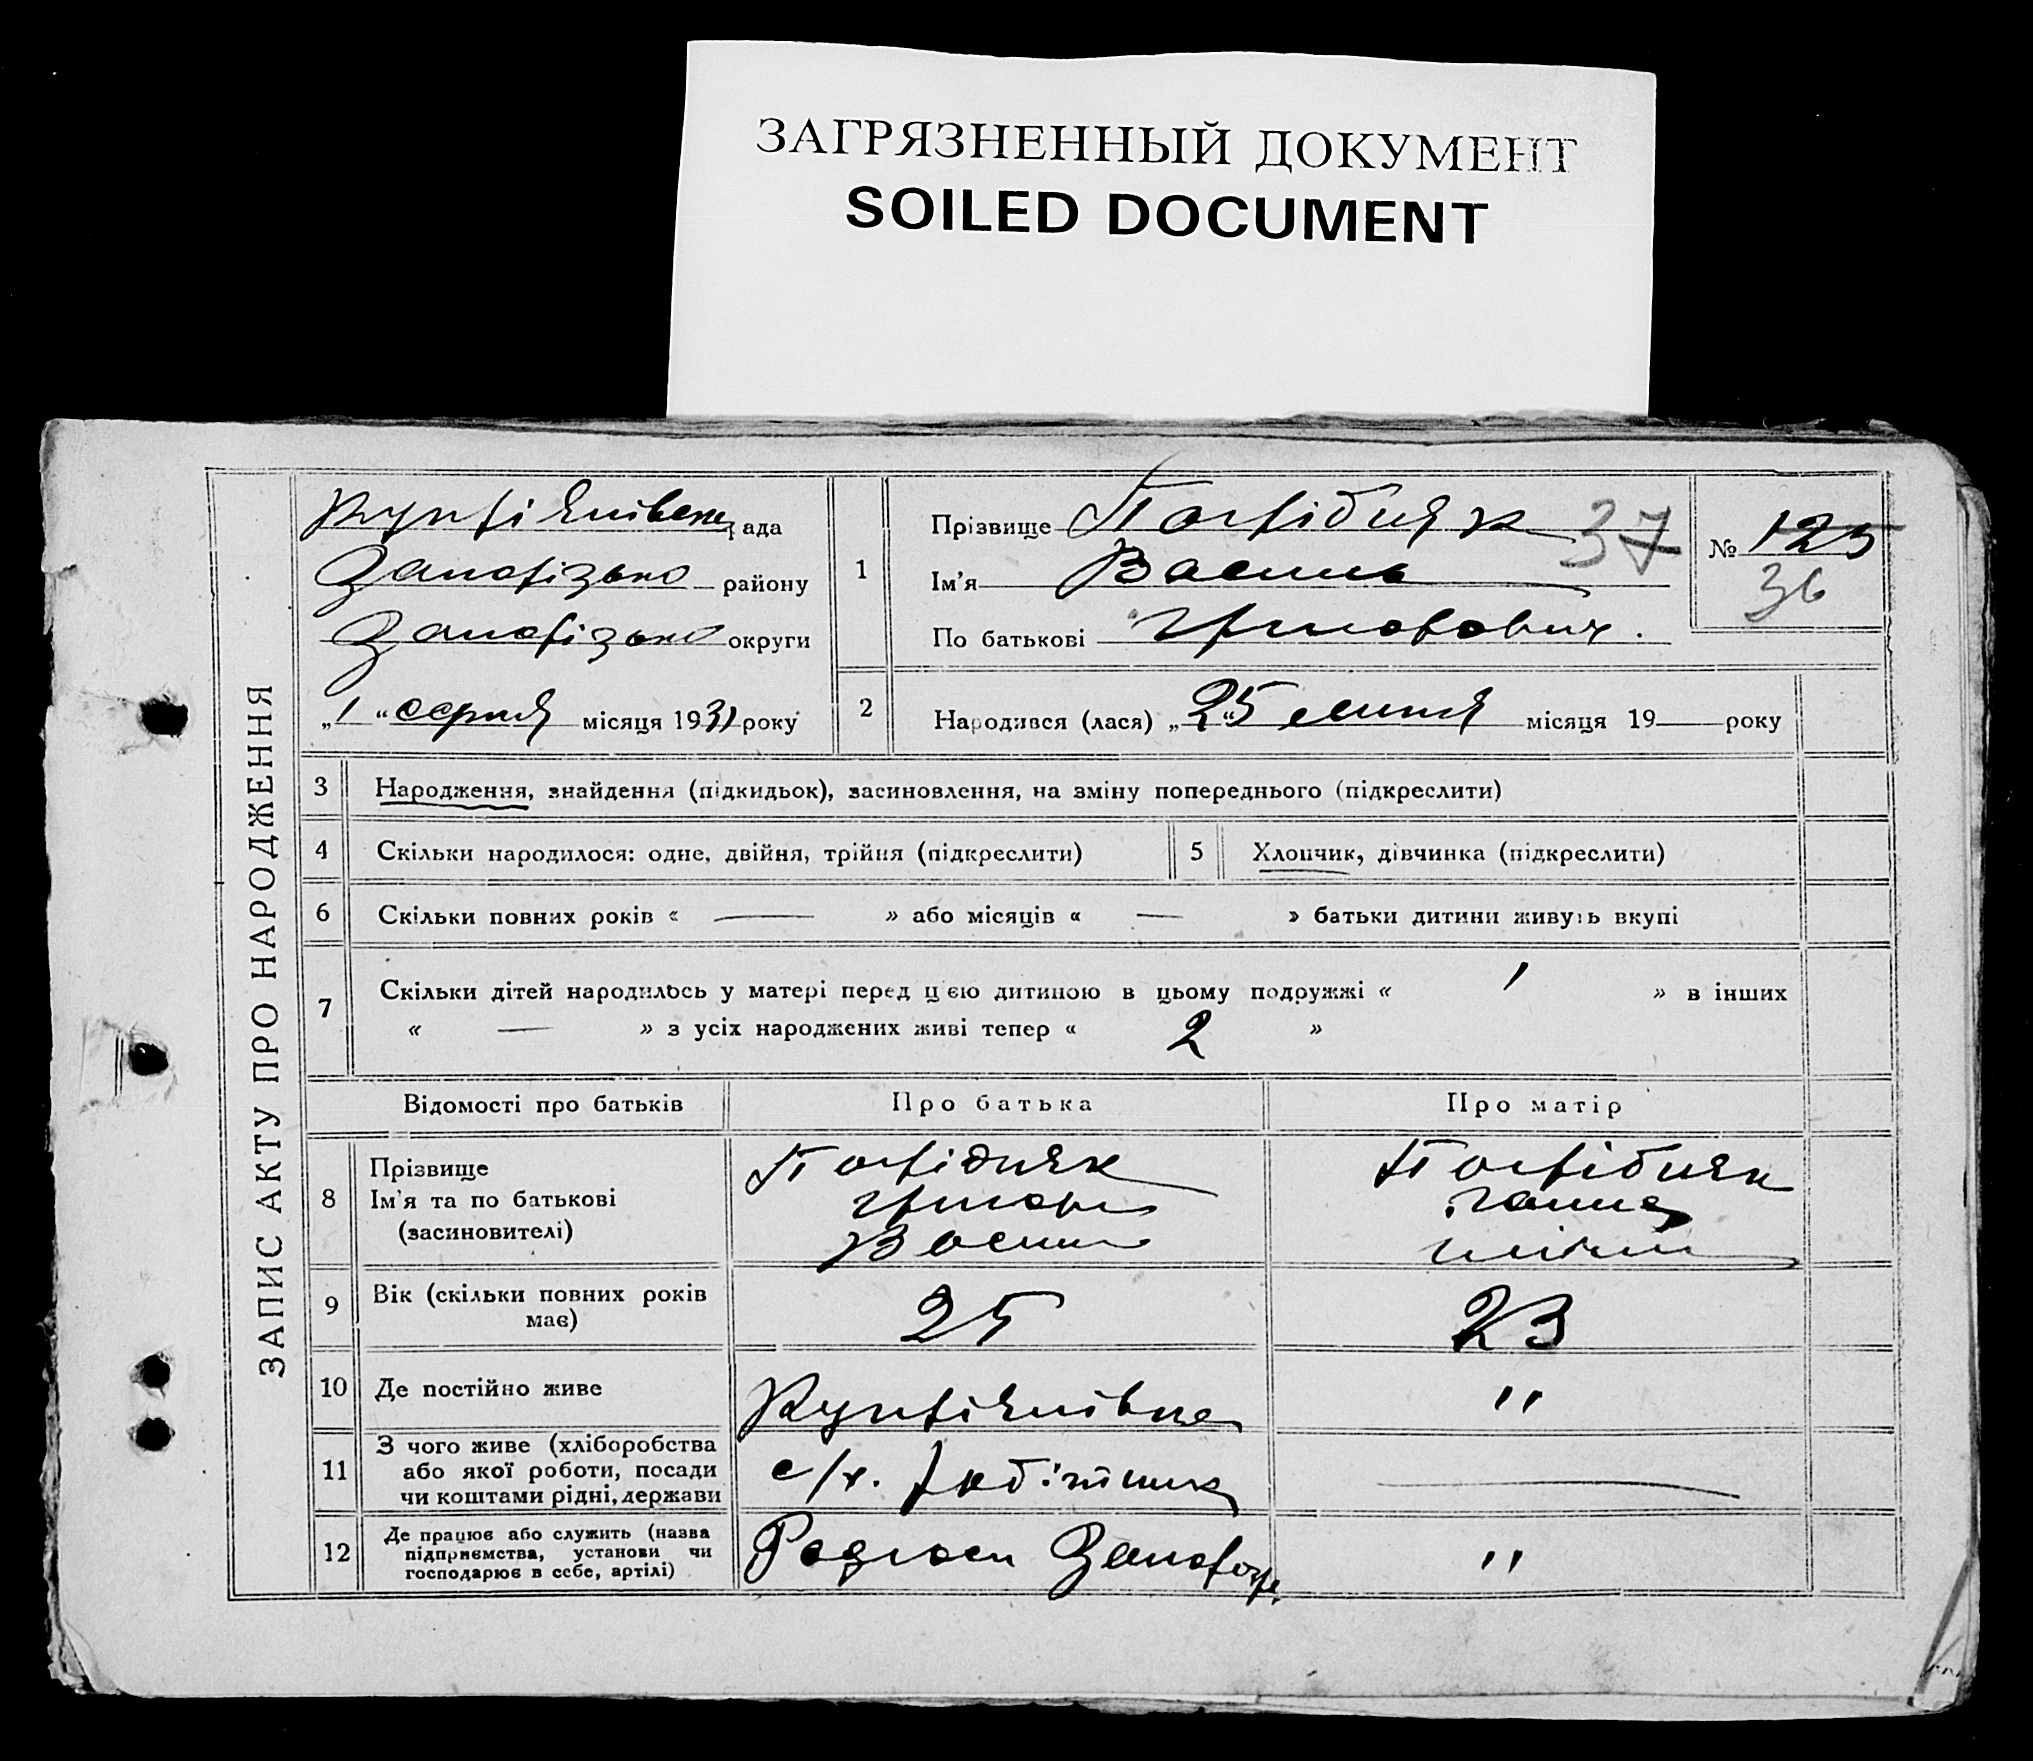 ЗАГРЯЗНЕННЫЙ ДОКУМЕНТ
SOILED DOCUMENT
ЗАПИС АКТУ ПРО НАРОДЖЕННЯ
рада
Запорізько району
Запорізько округи
„1“ серпня місяця 1931 року
1
Прізвище Погрібняк 37
Ім'я Василь
По батькові Григорович.
№ 125
36
2
Народився (лася) „25“ липня місяця 19— року
3 Народження, знайдення (підкидьок), засиновлення, на зміну попереднього (підкреслити)
4 Скільки народилося: одне, двійня, трійня (підкреслити)
5 Хлопчик, дівчинка (підкреслити)
6 Скільки повних років « — » або місяців « — » батьки дитини живуть вкупі
7 Скільки дітей народилось у матері перед цією дитиною в цьому подружжі « 1 » в інших
« — » з усіх народжених живі тепер « 2 »
Відомості про батьків Про батька Про матір
8
Прізвище
Ім'я та по батькові
(засиновителі)
Погрібняк
Григорій
Васил
Погрібняк
Ганна
9 Вік (скільки повних років
має)
25
23
10 Де постійно живе
"
11 З чого живе (хліборобства
або якої роботи, посади
чи коштами рідні, держави
с/г. робітник
—
12 Де працює або служить (назва
підприємства, установи чи
господарює в себе, артілі)
Радгосп
"